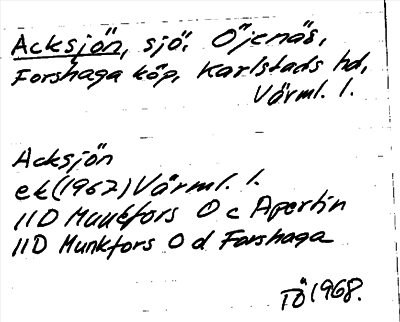 Acksjön, sjö, Öjenäs,
Forshaga köp, Karlstads hd,
Värml. l.
Acksjön
ek(1967) Värml. l.
11D Munkfors O c Apertin
11D Munkfors O d Forshaga
TÖ 1968.